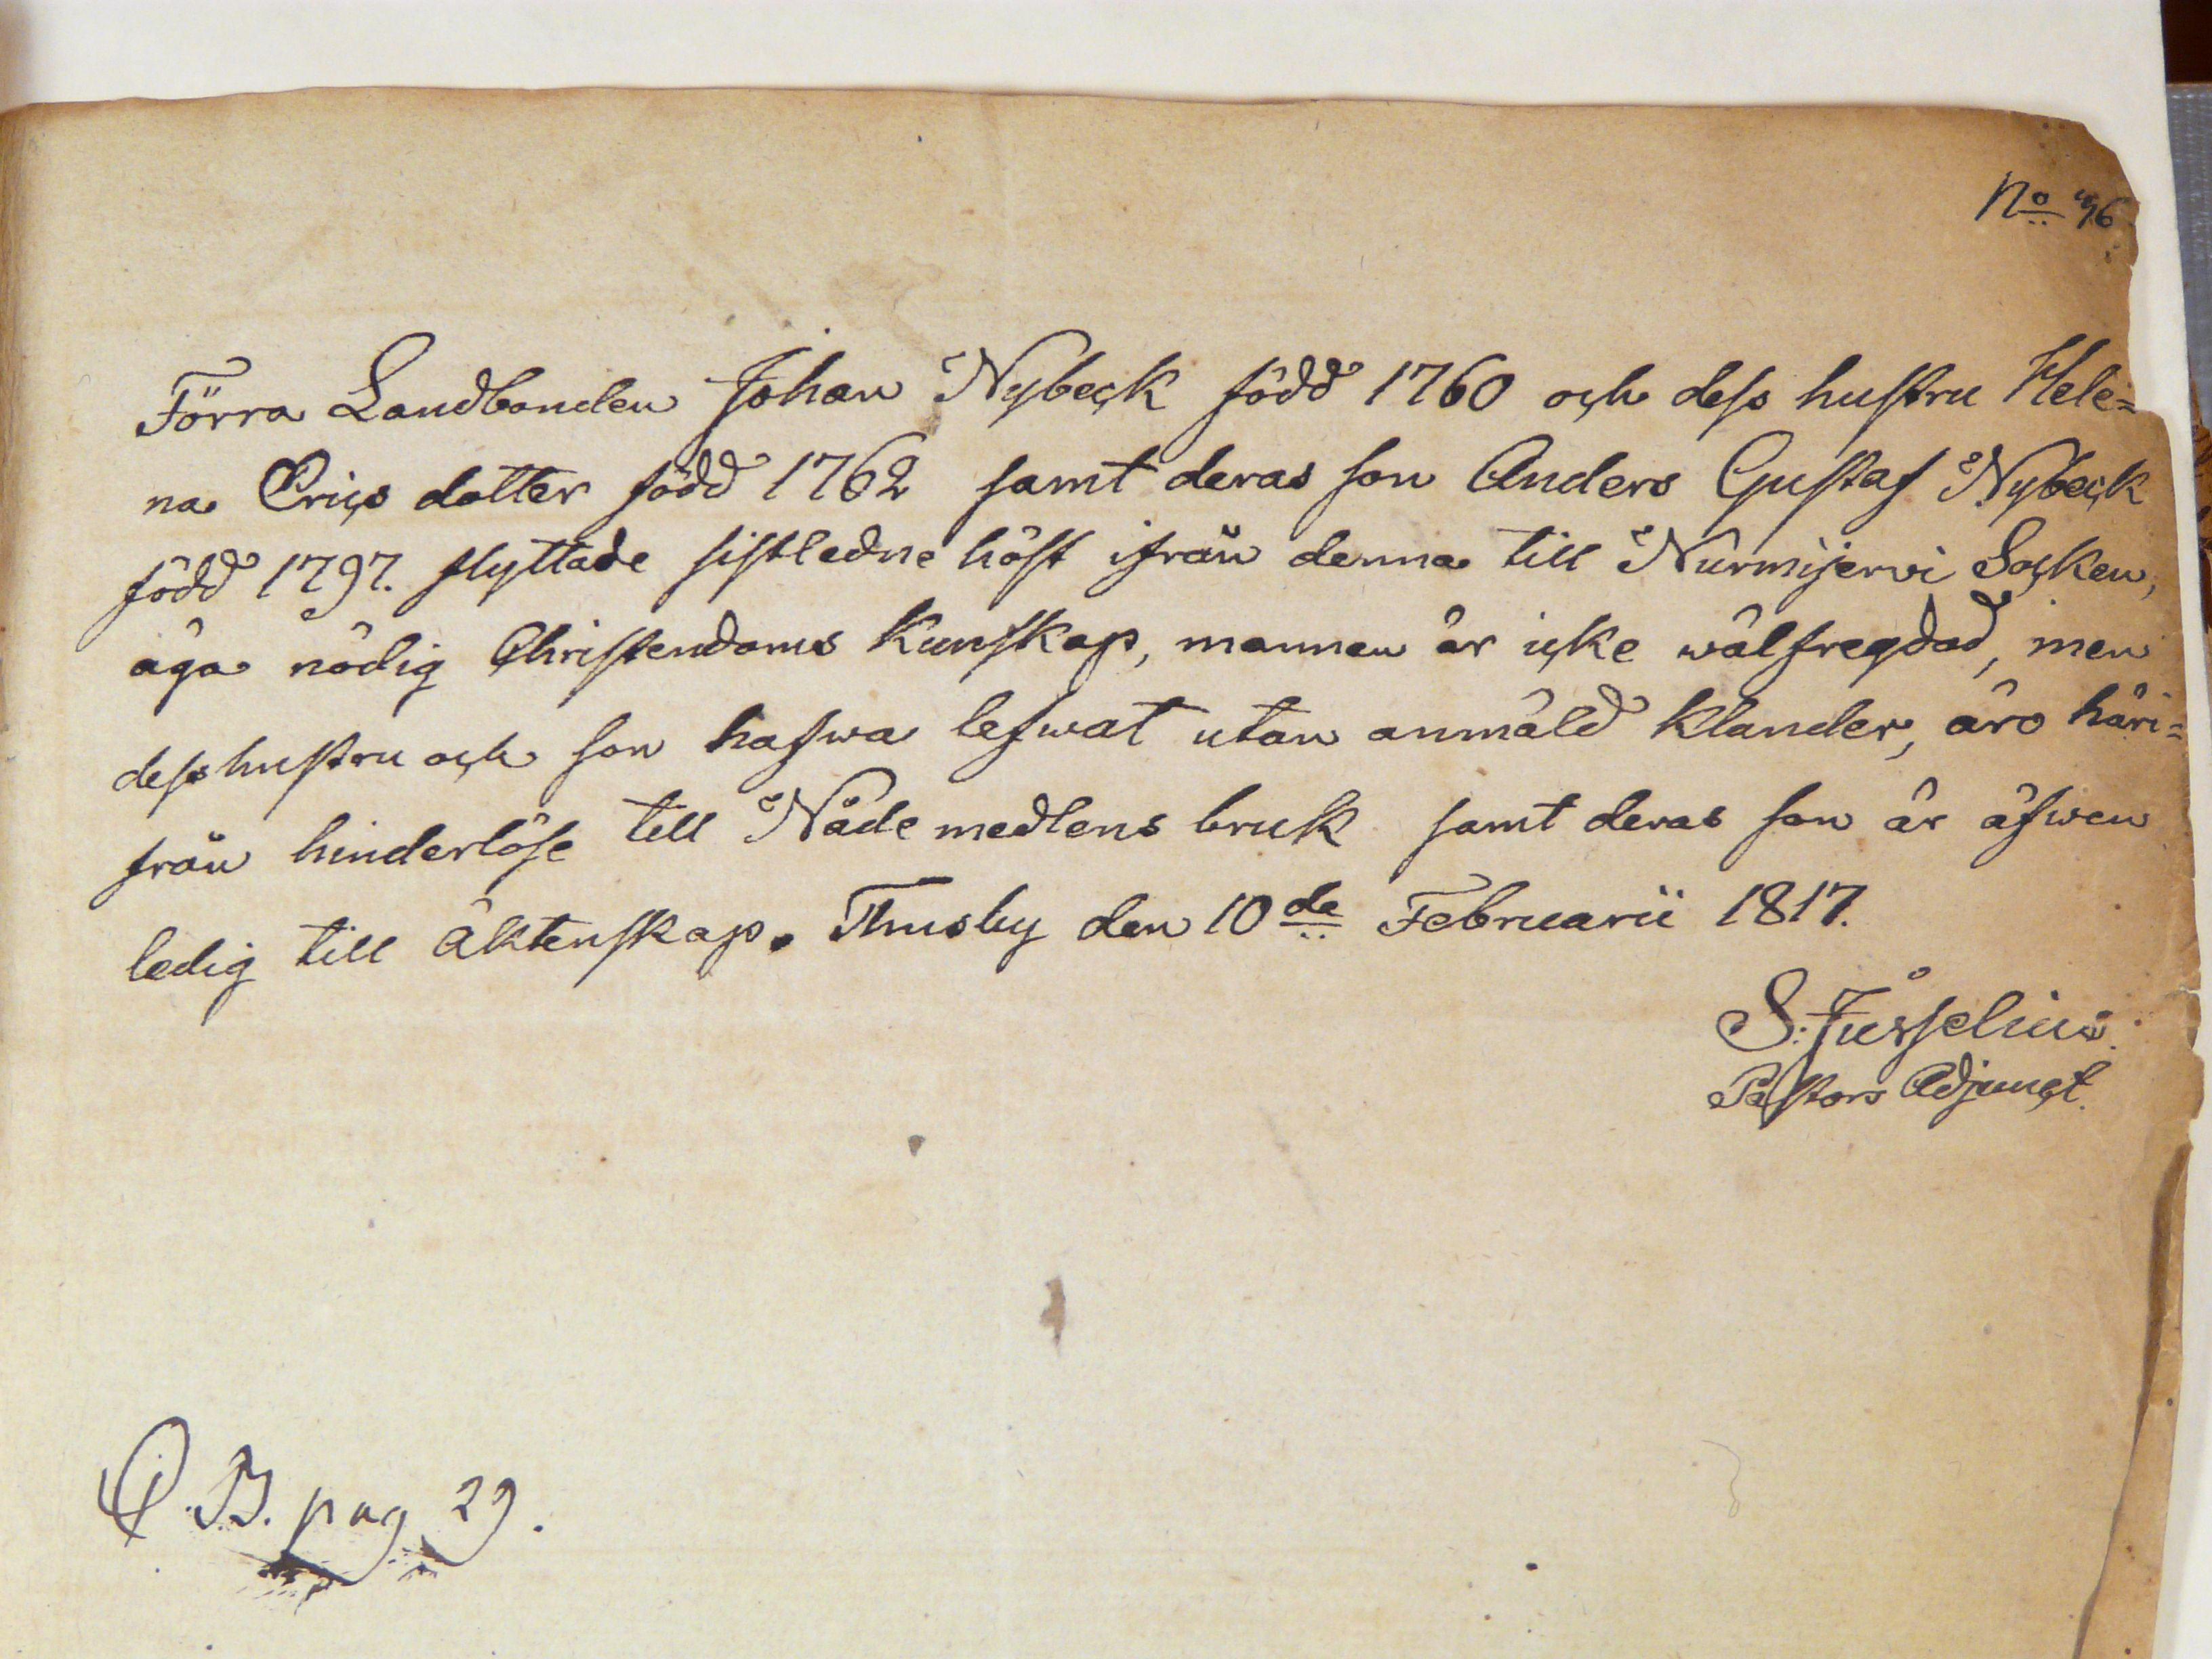 No 46
Förra Landbonden Johan Nybeck född 1760 och dess hustru Hele=
na Erics dotter född 1762 samt deras son Anders Gustaf Nybeck
född 1797. flyttade sistledne höst ifrån denna till Nurmijervi Socken,
äga nödig Christendoms Kunskap, mannen är icke wälfregdad, men
dess hustru och son hafwa lefwat utan anmäld Klander, äro häri=
från hinderlöse till Nådemedlens bruk samt deras son är äfwen
ledig till Äktenskap. Thusby den 10de Februarii 1817.
S. Jusselius.
Pastors Adjunct.
B. pag 29.